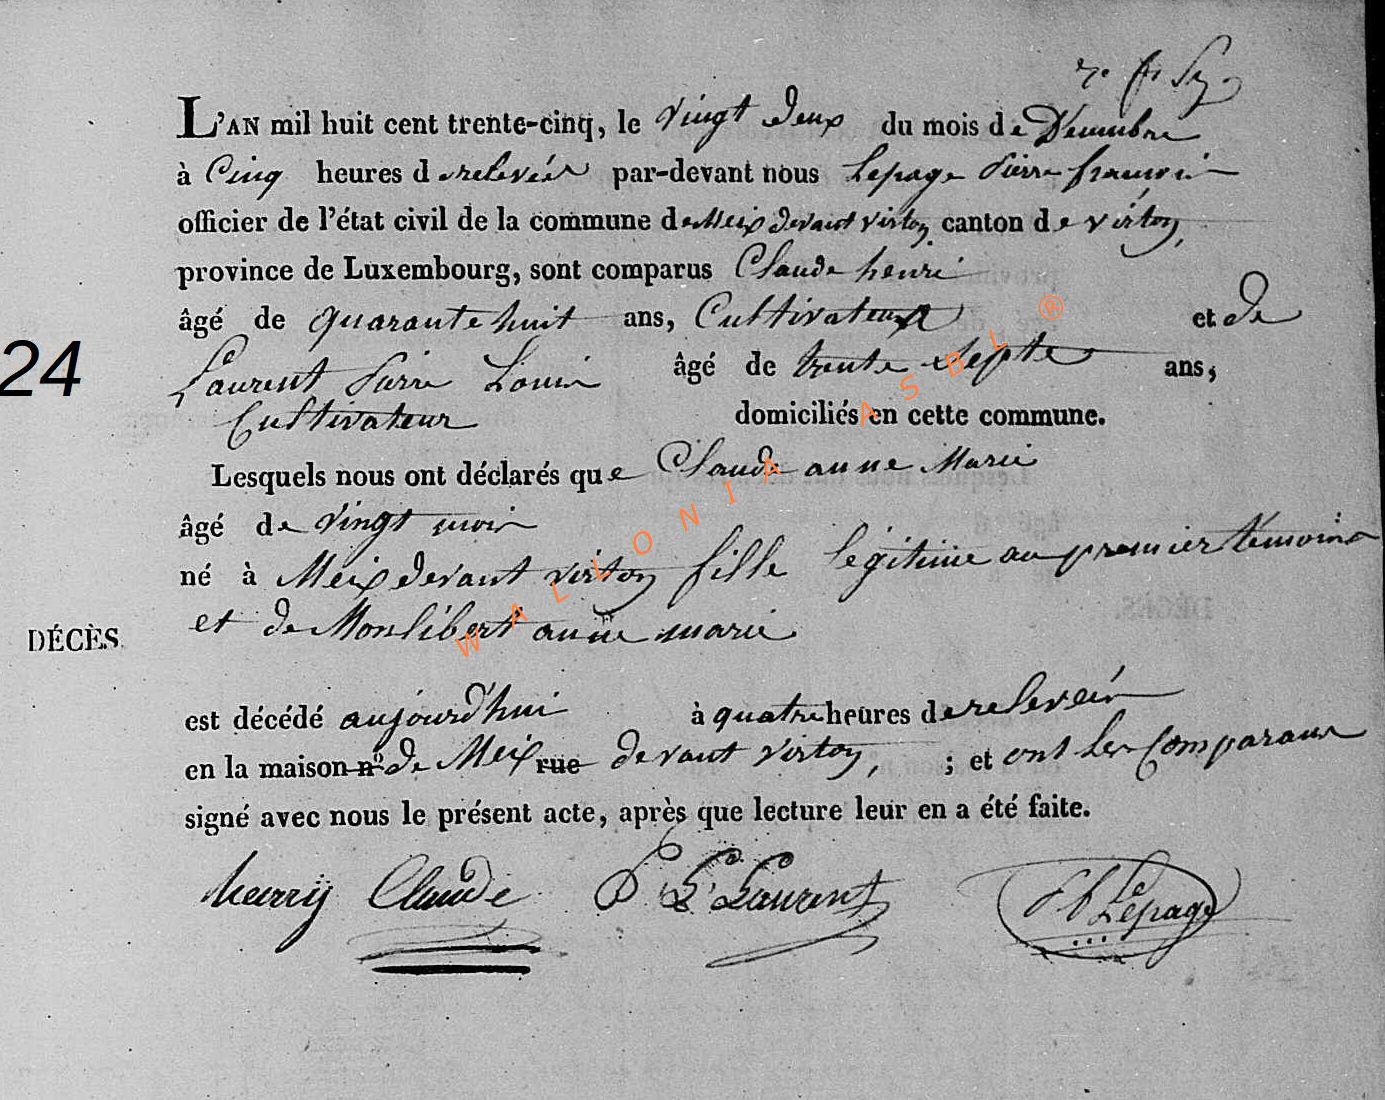 L'AN mil huit cent trente-cinq, le vingt deux du mois de Décembre
à Cinq heures de relevée par-devant nous Lepage Pierre françois
officier de l'état civil de la commune de Meix devant virton canton de virton,
province de Luxembourg, sont comparus Claude henri
âgé de quarante huit ans, Cultivateur et de
Laurent Pierre Louis âgé de trente septe ans,
24
Cultivateur domiciliés en cette commune.
Lesquels nous ont déclarés que Claude anne Marie
âgé de vingt mois
né à Meix devant virton fille légitime au premier témoins
et de Monlibert anne marie
DÉCÈS
est décédé aujourd'hui à quatre heures de relevée
en la maison n° de Meix rue devant virton, ; et ont les Comparans
signé avec nous le présent acte, après que lecture leur en a été faite.
henrij Claude P L Laurent Lepage
WALLONIA ASBL ®